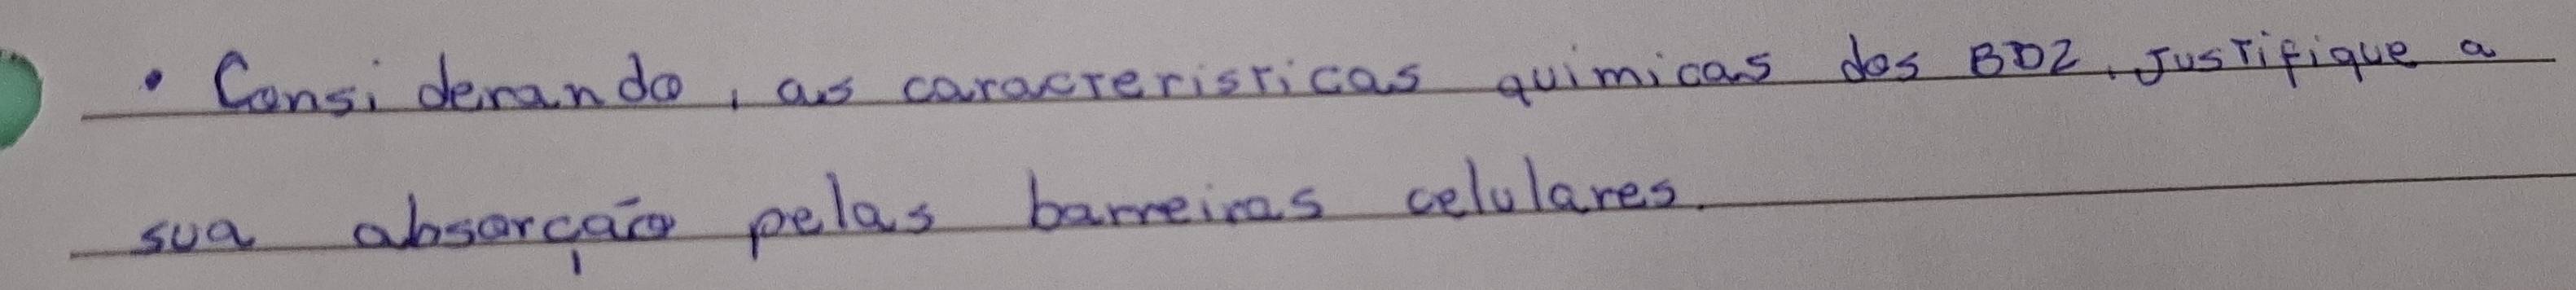 • Considerando, as caracteristicas quimicas dos BDZ, Justifique a
sua absorção pelas barreiras celulares.